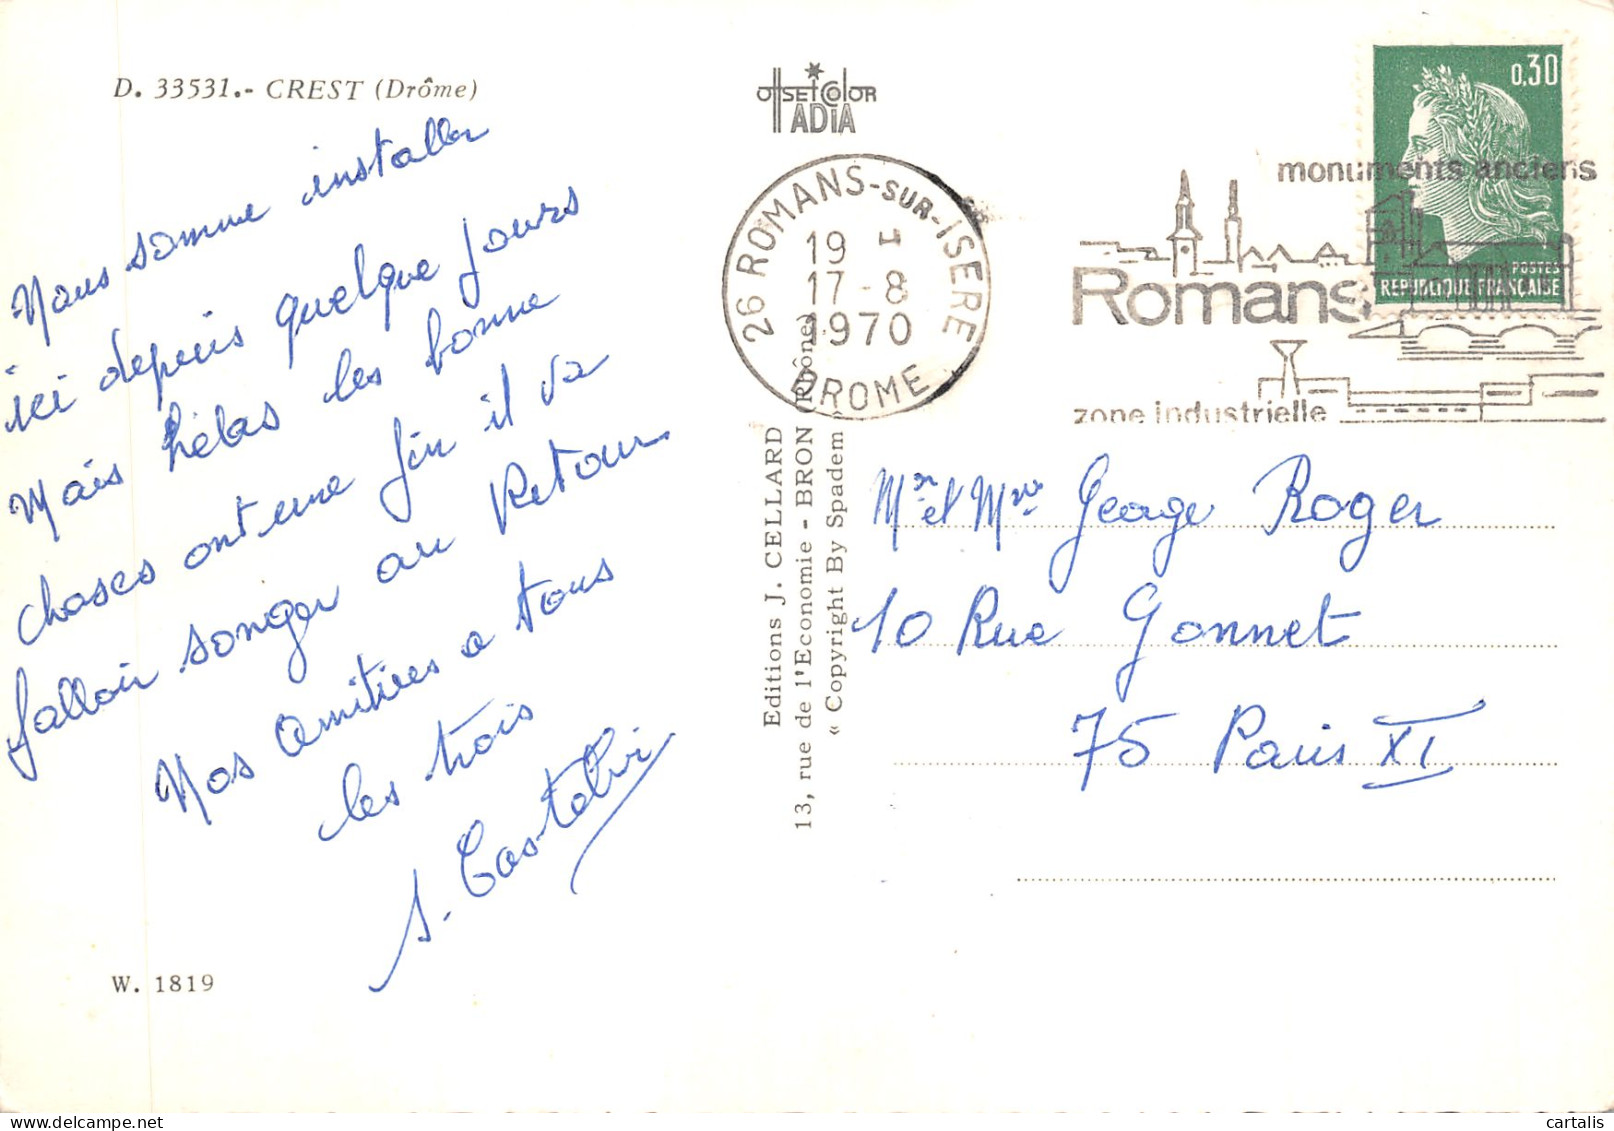 D. 33531.- CREST (Drôme)
Nous somme installer
ici depuis quelque jours
Mais hélas les bonne
choses ont une fin il va
falloir songer au Retour.
Nos Amitiées a tous
les trois
S. Castelvi
W. 1819
OffSEt COlOR
ADiA
Editions J. CELLARD
13, rue de l'Economie - BRON (Rhône)
« Copyright By Spadem
26 ROMANS-SUR-ISERE
19 H
17-8
1970
DROME
monuments anciens
Romans
zone industrielle
0,30
POSTES
REPUBLIQUE FRANÇAISE
Mr et Mme George Roger
10 Rue Gonnet
75 Paris XI
cartalis